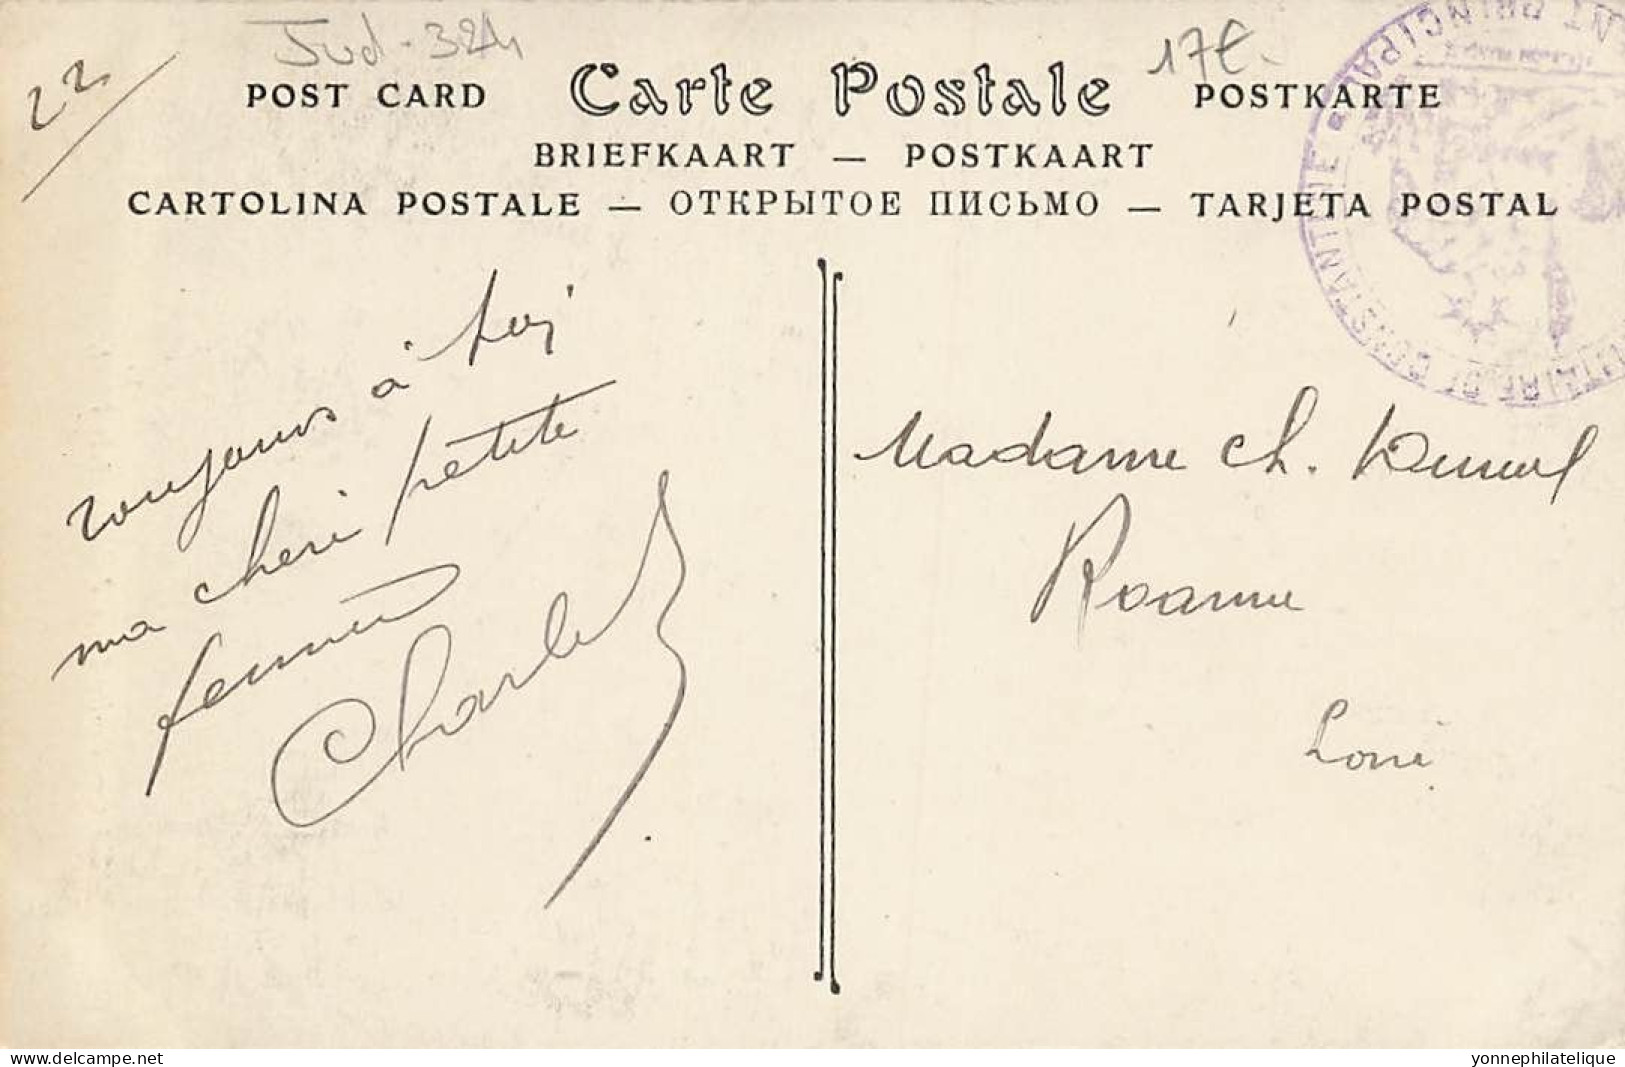 22
Jud - 324
17€
POST CARD Carte Postale POSTKARTE
BRIEFKAART — POSTKAART
CARTOLINA POSTALE — ОТКРЫТОЕ ПИСЬМО — TARJETA POSTAL
PRINCIPAL CONSTANTINE
toujours à toi
ma cheri petite
femme
Charles
Madame Ch.
Roanne
Loire
delcampe.net
yonnephilatelique